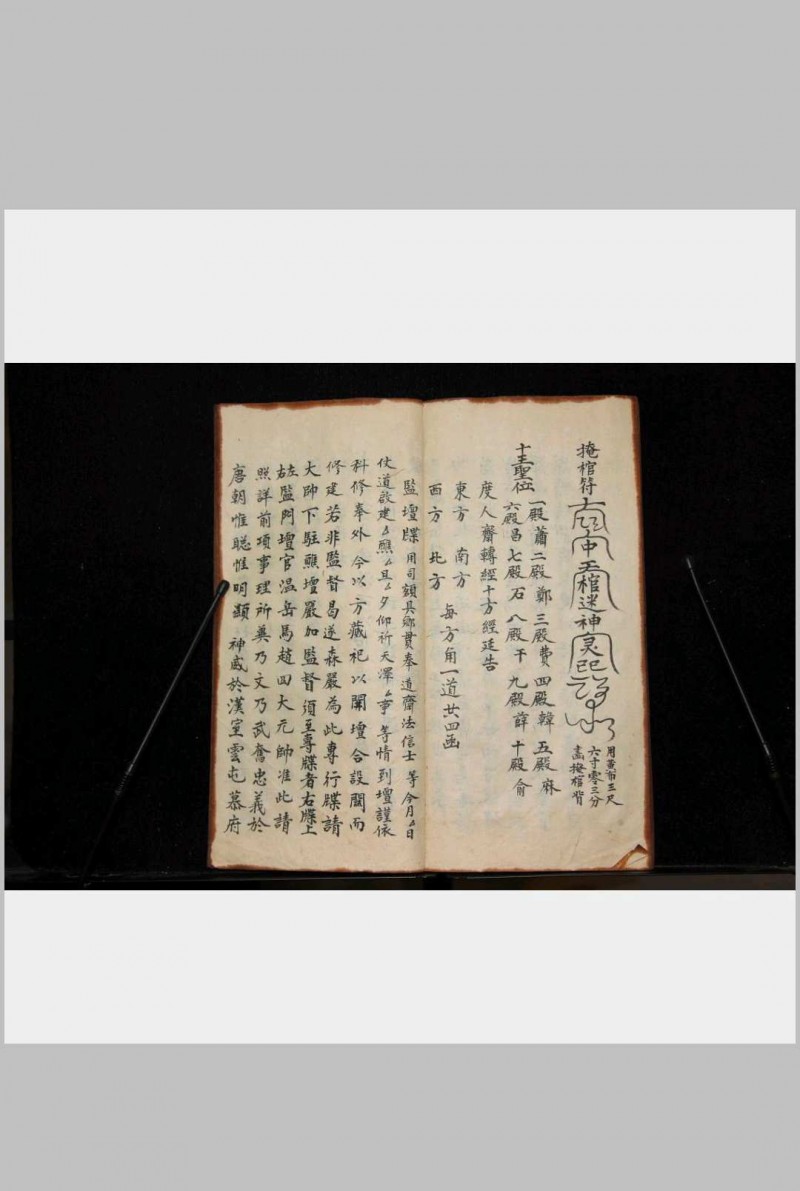 掩棺符
用黃布三尺
六寸零三分
畫掩棺背
十王聖位
一殿蕭二殿鄭三殿費四殿韓五殿麻
六殿昌七殿石八殿于九殿薛十殿俞
度人齋轉經十方經廷告
東方 南方
西方 北方
每方角一道共四函
監壇牒 用司額具鄉貫奉道齋法信士 等今月厶日
仗道啟建厶醮厶旦厶夕仰祈天澤厶事 等情到壇謹依
科修奉外今以方藏祀以開壇合設闢而
修建若非監督曷遂森嚴為此專行牒請
大帥下駐醮壇嚴加監督須至專牒者右牒上
左右監門壇官溫岳馬趙四大元帥准此請
照詳前項事理所冀乃文乃武奮忠義於
唐朝惟聰惟明顯 神威於漢室雲屯慕府